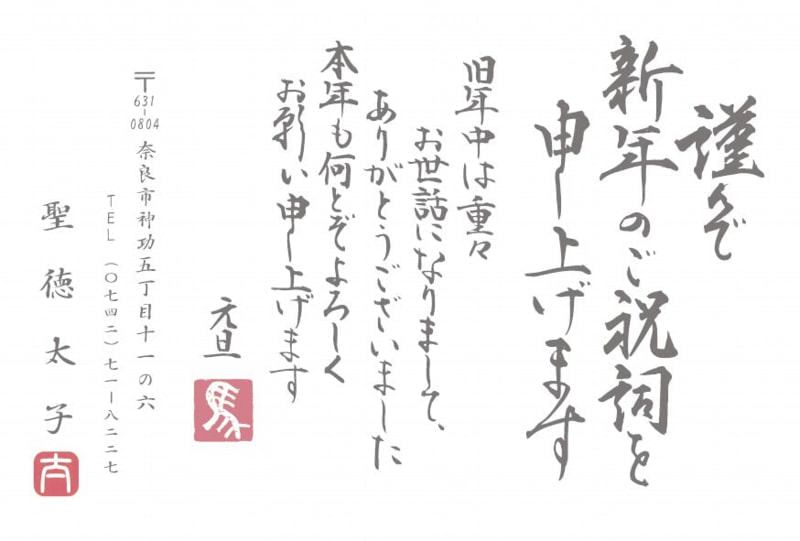 謹んで
新年のご祝詞を
申し上げます
旧年中は重々
お世話になりまして、
ありがとうございました
本年も何とぞよろしく
お願い申し上げます
元旦
馬
〒631-0804
奈良市神功五丁目十一の六
TEL (〇七四二)七一ー八二二七
聖徳太子